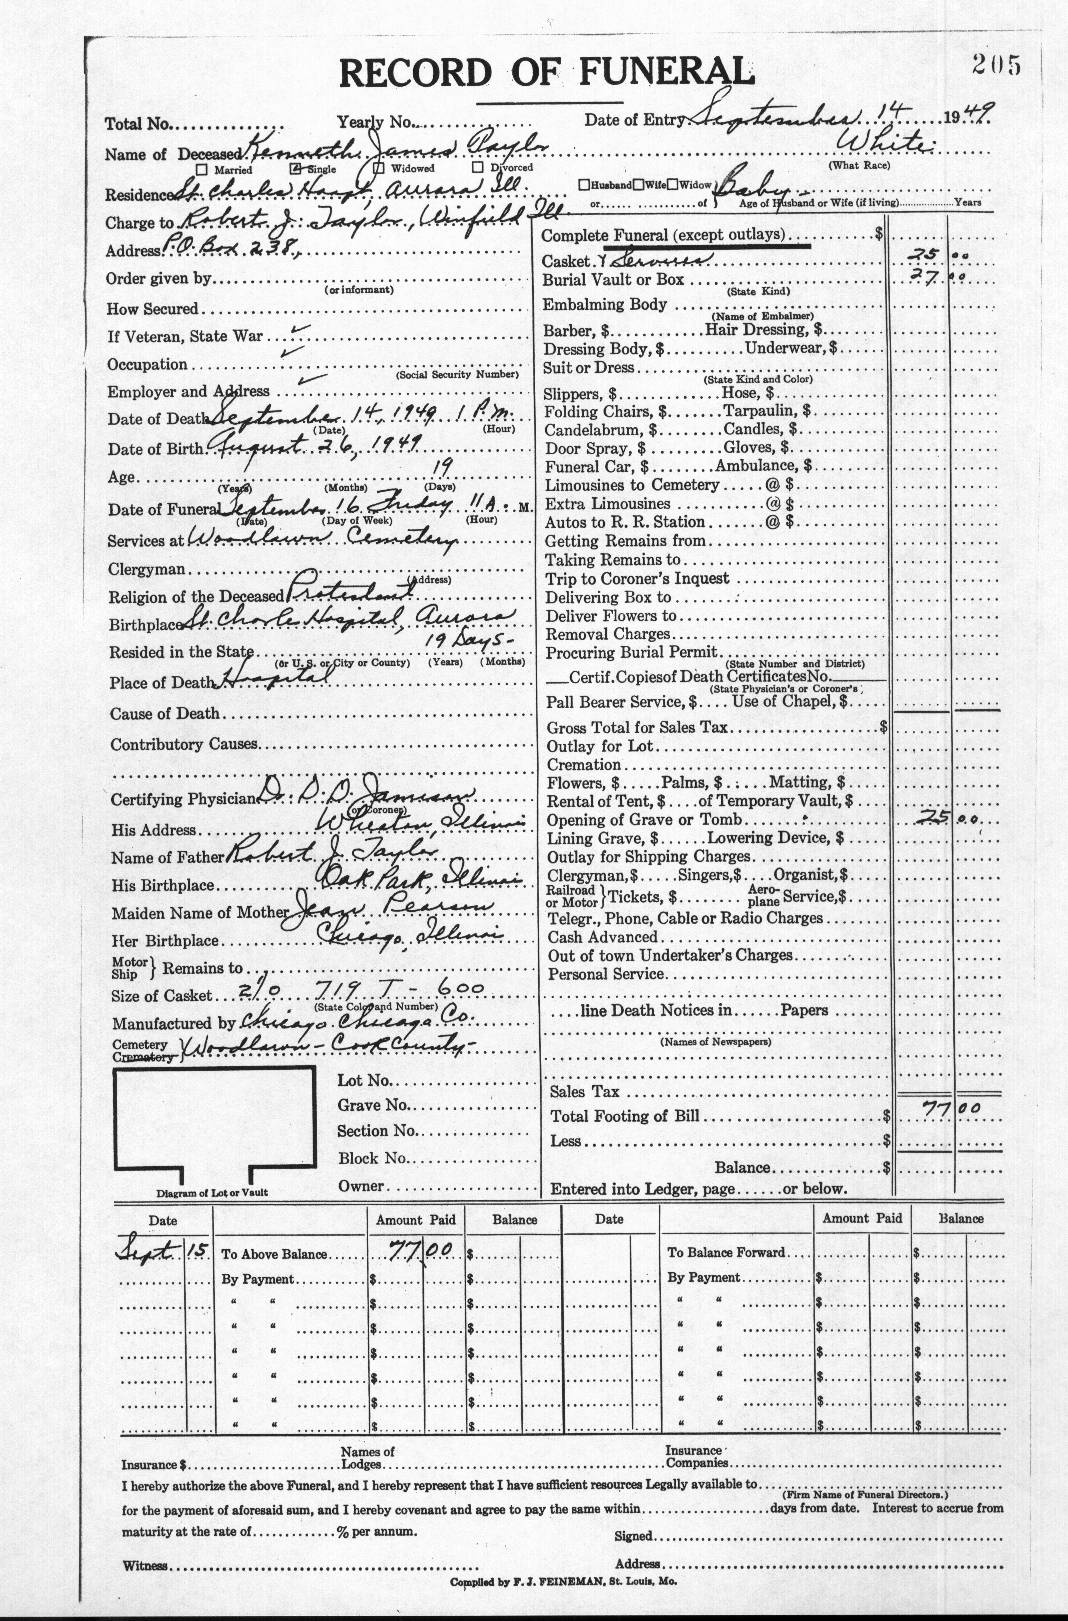 205
RECORD OF FUNERAL
Total No. Yearly No. Date of Entry September 14 1949
Name of Deceased Kenneth James Taylor White
Married Single Widowed Divorced (What Race)
Residence St. Charles Hospt, Aurora Ill. Husband Wife Widow Baby
or of Age of Husband or Wife (if living) Years
Charge to Robert J. Taylor, Winfield Ill.
Address P.O. Box 238,
Order given by
(or informant)
How Secured
If Veteran, State War ✓
Occupation ✓
(Social Security Number)
Employer and Address ✓
Date of Death September 14, 1949 1 P.M.
(Date) (Hour)
Date of Birth August 26, 1949
Age 19
(Years) (Months) (Days)
Date of Funeral September 16 Friday 11 A. M.
(Date) (Day of Week) (Hour)
Services at Woodlawn Cemetery
Clergyman
(Address)
Religion of the Deceased Protestant
Birthplace St. Charles Hospital, Aurora
Resided in the State 19 Days -
(or U. S. or City or County) (Years) (Months)
Place of Death Hospital
Cause of Death
Contributory Causes
Certifying Physician Dr. D. D. Jamison
(or Coroner)
His Address Wheaton, Illinois
Name of Father Robert J. Taylor
His Birthplace Oak Park, Illinois
Maiden Name of Mother Jean Pearson
Her Birthplace Chicago, Illinois
Motor Ship } Remains to
Size of Casket 2/0 719 T - 600
(State Color and Number)
Manufactured by Chicago Chicago Co.
Cemetery Crematory } Woodlawn - Cook County -
Lot No.
Grave No.
Section No.
Block No.
Owner
Diagram of Lot or Vault
Complete Funeral (except outlays) $
Casket & Services 25 00
Burial Vault or Box 27 00
(State Kind)
Embalming Body
(Name of Embalmer)
Barber, $ Hair Dressing, $
Dressing Body, $ Underwear, $
Suit or Dress
(State Kind and Color)
Slippers, $ Hose, $
Folding Chairs, $ Tarpaulin, $
Candelabrum, $ Candles, $
Door Spray, $ Gloves, $
Funeral Car, $ Ambulance, $
Limousines to Cemetery @ $
Extra Limousines @ $
Autos to R. R. Station @ $
Getting Remains from
Taking Remains to
Trip to Coroner's Inquest
Delivering Box to
Deliver Flowers to
Removal Charges
Procuring Burial Permit
(State Number and District)
Certif. Copies of Death Certificates No.
(State Physician's or Coroner's)
Pall Bearer Service, $ Use of Chapel, $
Gross Total for Sales Tax $
Outlay for Lot
Cremation
Flowers, $ Palms, $ Matting, $
Rental of Tent, $ of Temporary Vault, $
Opening of Grave or Tomb 25 00
Lining Grave, $ Lowering Device, $
Outlay for Shipping Charges
Clergyman, $ Singers, $ Organist, $
Railroad or Motor } Tickets, $ Aero-plane Service, $
Telegr., Phone, Cable or Radio Charges
Cash Advanced
Out of town Undertaker's Charges
Personal Service
line Death Notices in Papers
(Names of Newspapers)
Sales Tax
Total Footing of Bill $ 77 00
Less $
Balance $
Entered into Ledger, page or below.
Date Amount Paid Balance Date Amount Paid Balance
Sept 15 To Above Balance 77 00 $ To Balance Forward $
By Payment $ $ By Payment $ $
" " $ $ " " $ $
" " $ $ " " $ $
" " $ $ " " $ $
" " $ $ " " $ $
" " $ $ " " $ $
" " $ $ " " $ $
Insurance $ Names of Lodges Insurance Companies
I hereby authorize the above Funeral, and I hereby represent that I have sufficient resources Legally available to
(Firm Name of Funeral Directors.)
for the payment of aforesaid sum, and I hereby covenant and agree to pay the same within days from date. Interest to accrue from
maturity at the rate of % per annum. Signed
Witness Address
Compiled by F. J. FEINEMAN, St. Louis, Mo.